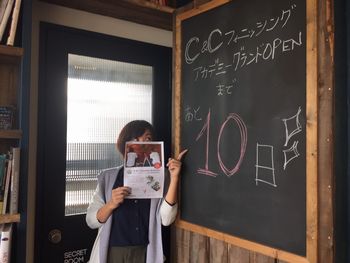 C&Cフィニッシング
アカデミーグランドOPEN
まで
あと
10日
SECRET
ROOM